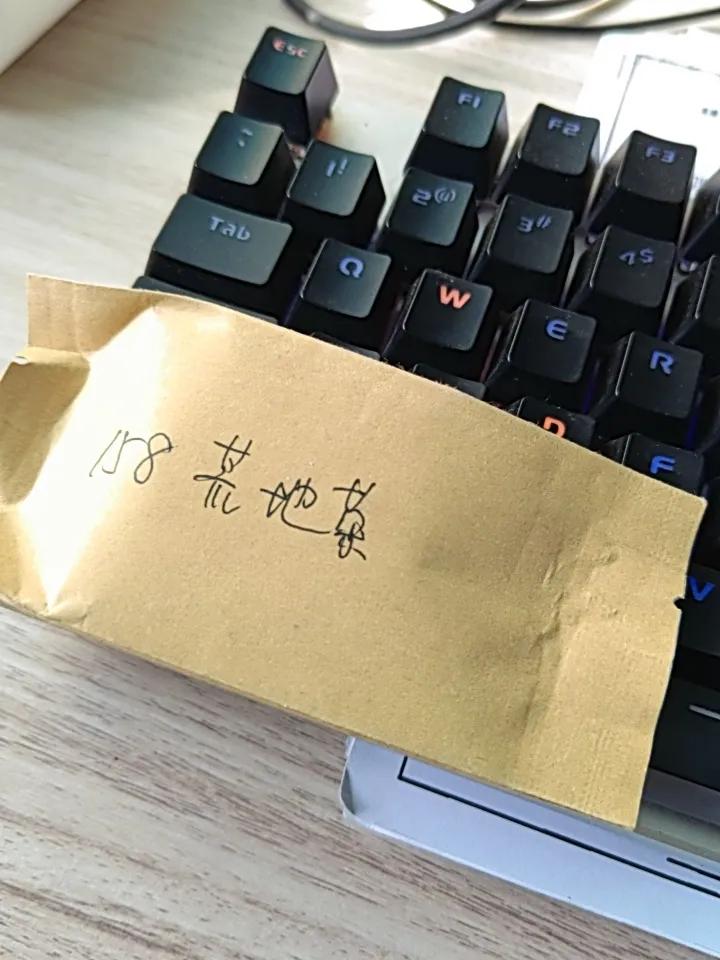 ESC F1 F2 F3
1! 2@ 3# 4$
Tab Q W E R
D F
158 荒地
V